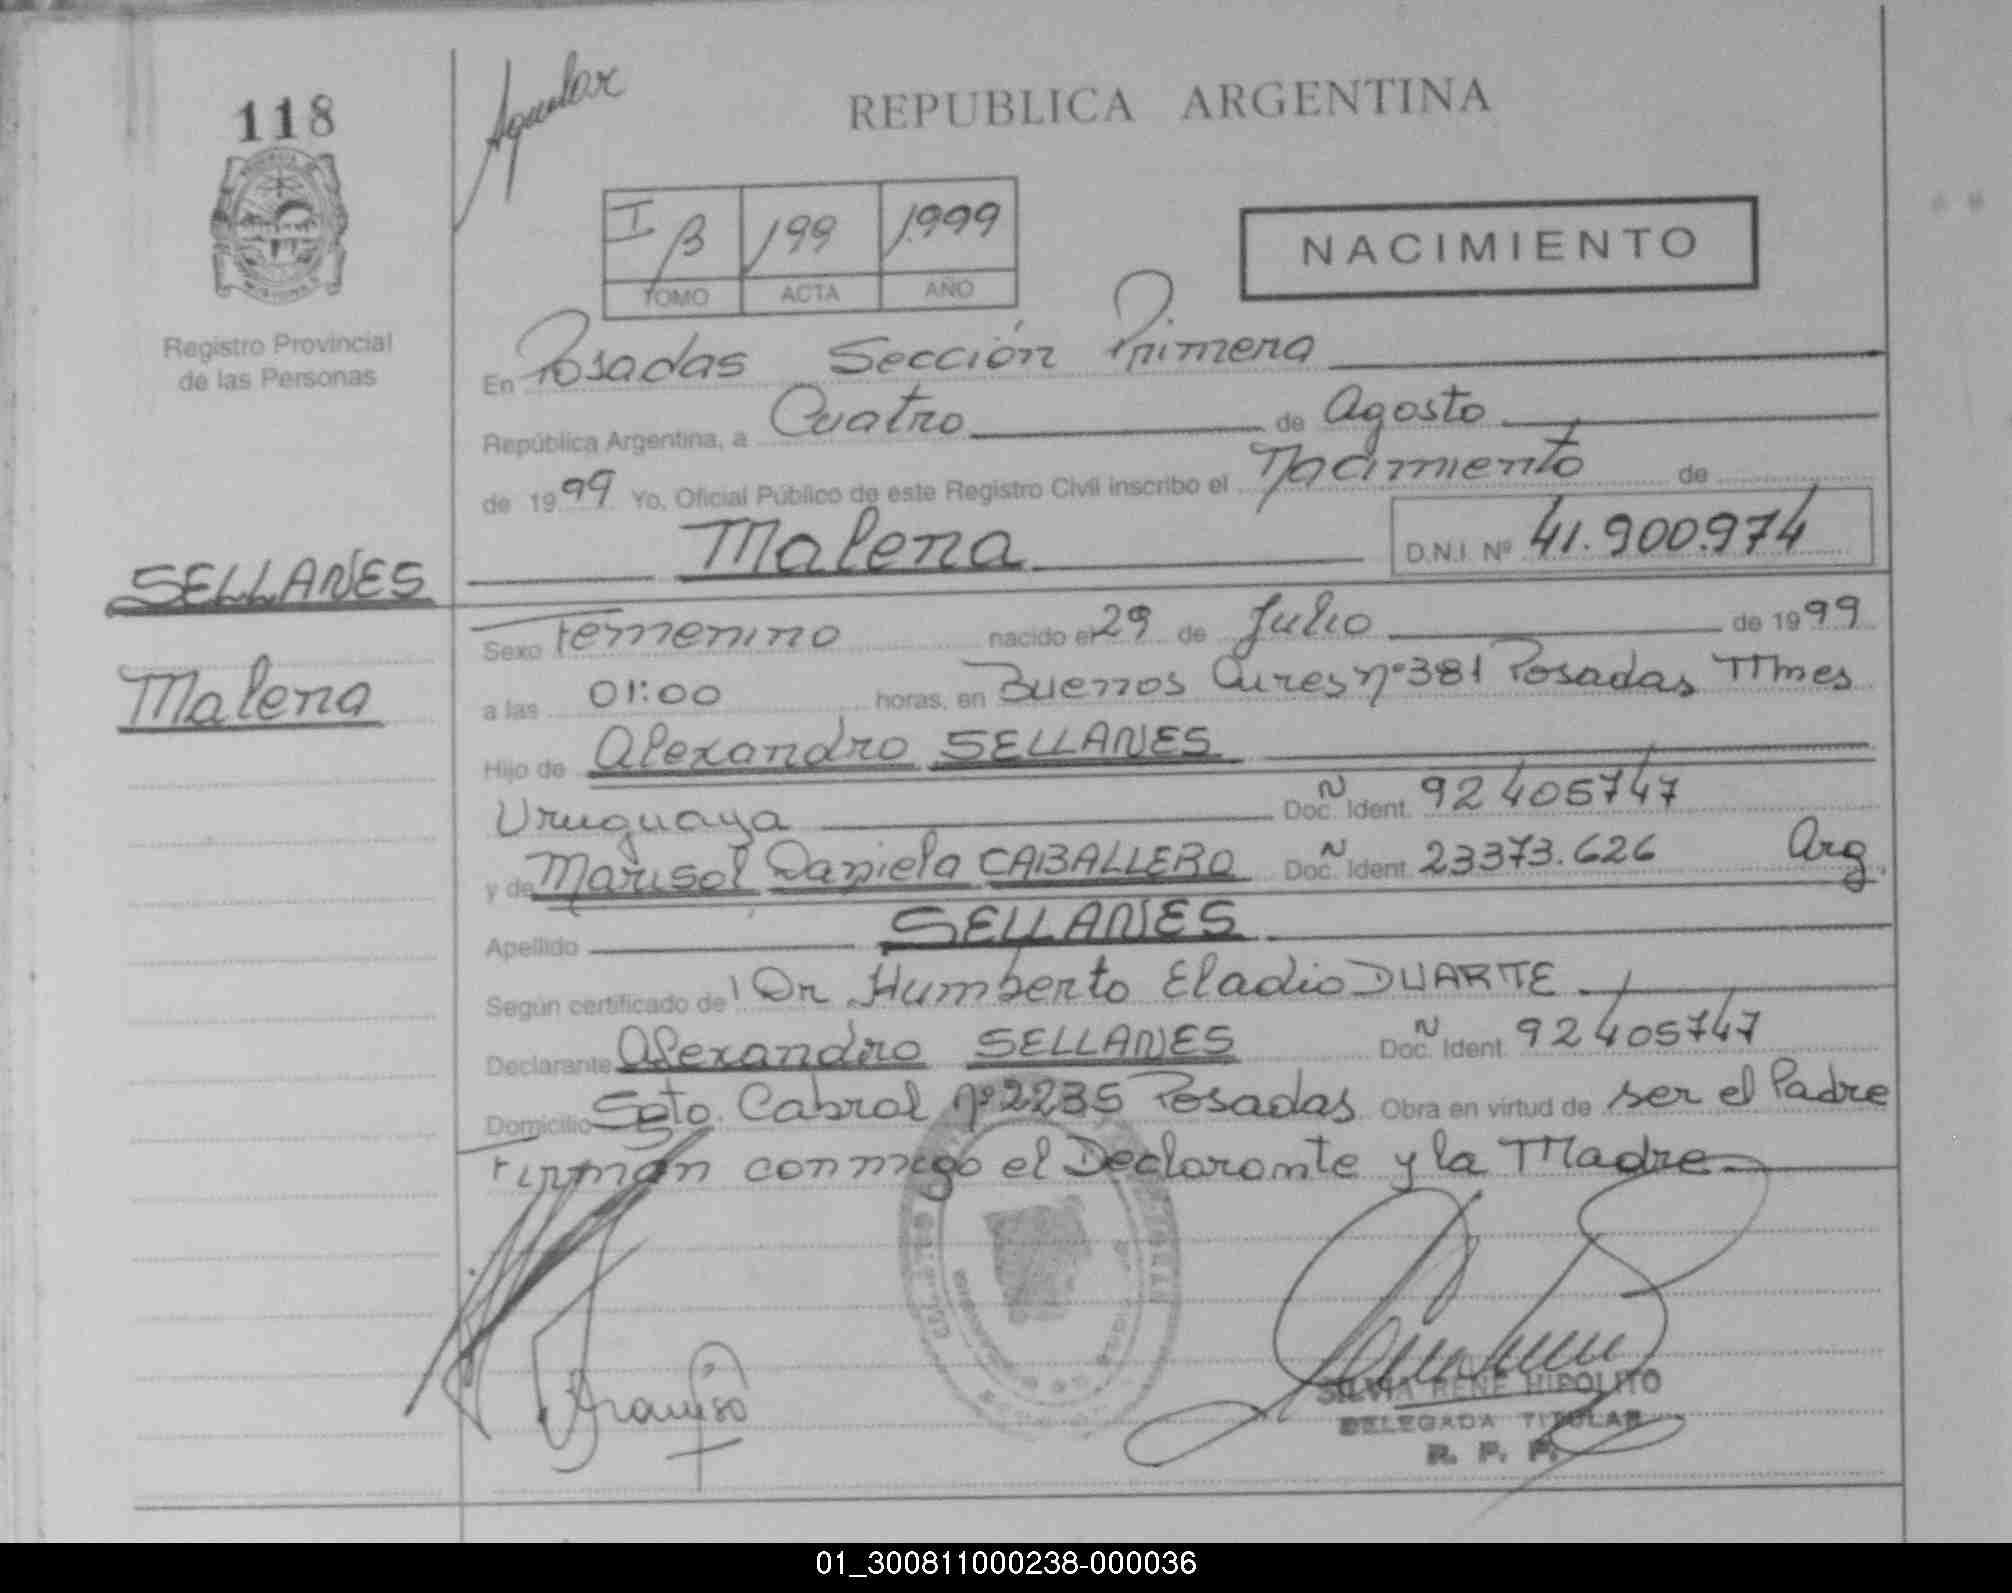 118
Aguilar
REPUBLICA ARGENTINA
I/B 199 1999
TOMO ACTA AÑO
NACIMIENTO
Registro Provincial
de las Personas
En Posadas Sección Primera
República Argentina, a Cuatro de Agosto
de 1999 Yo, Oficial Público de este Registro Civil inscribo el Nacimiento de
Malena D.N.I. Nº 41.900.974
SELLANES
Malena
Sexo Femenino nacido el 29 de Julio de 1999
a las 01:00 horas, en Buenos Aires nº 381 Posadas Mnes
Hijo de Alexandro SELLANES
Uruguaya Doc. Ident. 92405747
y de Marisol Daniela CABALLERO Doc. Ident. 23373.626 Arg.
Apellido SELLANES
Según certificado de Dr Humberto Eladio DUARTE
Declarante Alexandro SELLANES Doc. Ident. 92405747
Domicilio Sgto. Cabral nº 2235 Posadas Obra en virtud de ser el Padre
Firman conmigo el Declarante y la Madre
SILVIA RENE HIPOLITO
DELEGADA TITULAR
R. P. P.
01_300811000238-000036